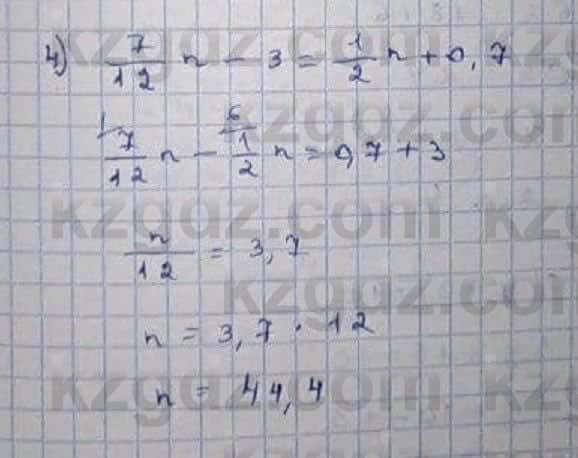 4) 7/12 n - 3 = 1/2 n + 0,7
1 6
7/12 n - 1/2 n = 0,7 + 3
n/12 = 3,7
n = 3,7 · 12
n = 44,4
kzgdz.com
kzgdz.com
kzgdz.com
kzgdz.com
kzgdz.com